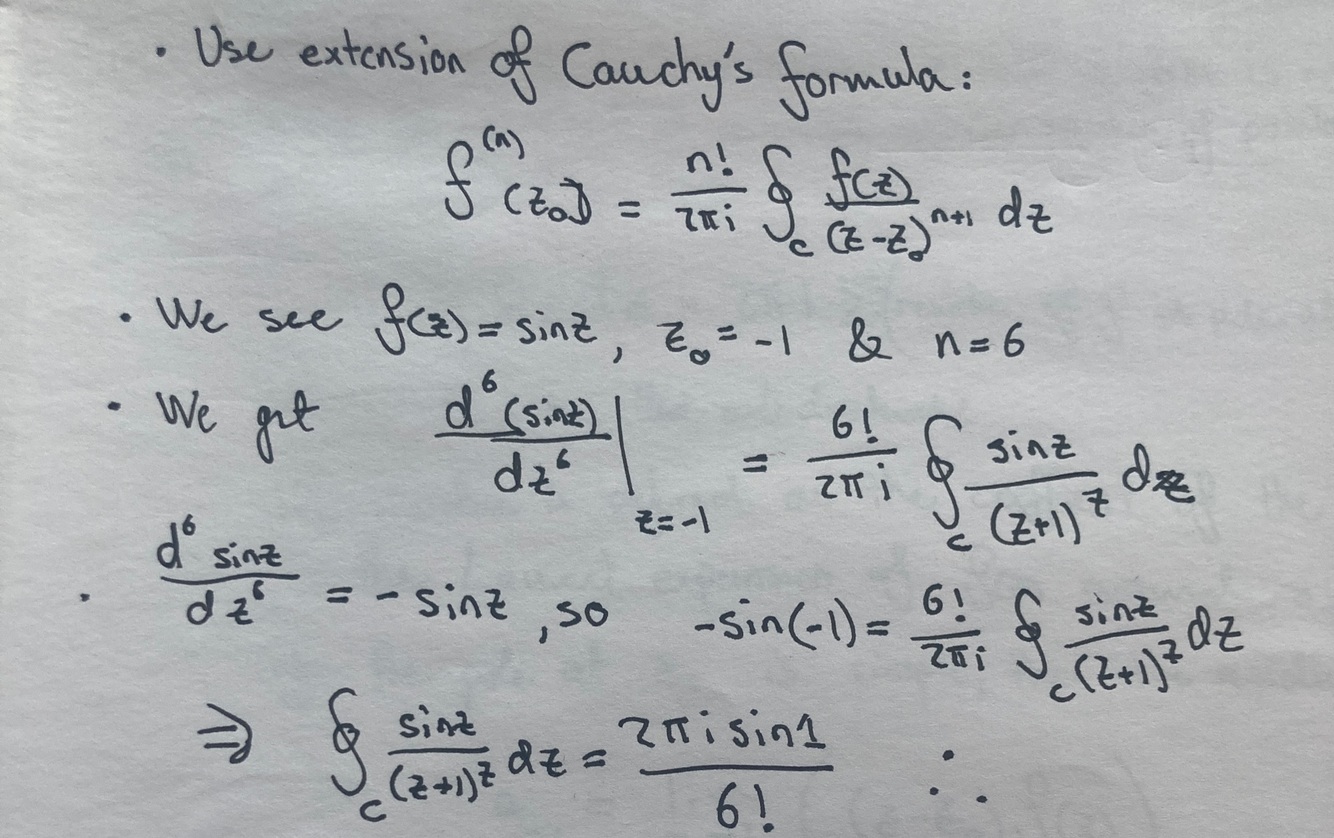 • Use extension of Cauchy's formula:
f^(n)(z₀) = n!/2πi ∮_c f(z)/(z-z₀)^n+1 dz
• We see f(z) = sinz, z₀ = -1 & n = 6
• We get d⁶(sinz)/dz⁶ |_z=-1 = 6!/2πi ∮_c sinz/(z+1)⁷ dz
• d⁶ sinz/dz⁶ = - sinz, so -sin(-1) = 6!/2πi ∮_c sinz/(z+1)⁷ dz
⇒ ∮_c sinz/(z+1)⁷ dz = 2πi sin1/6! ∴